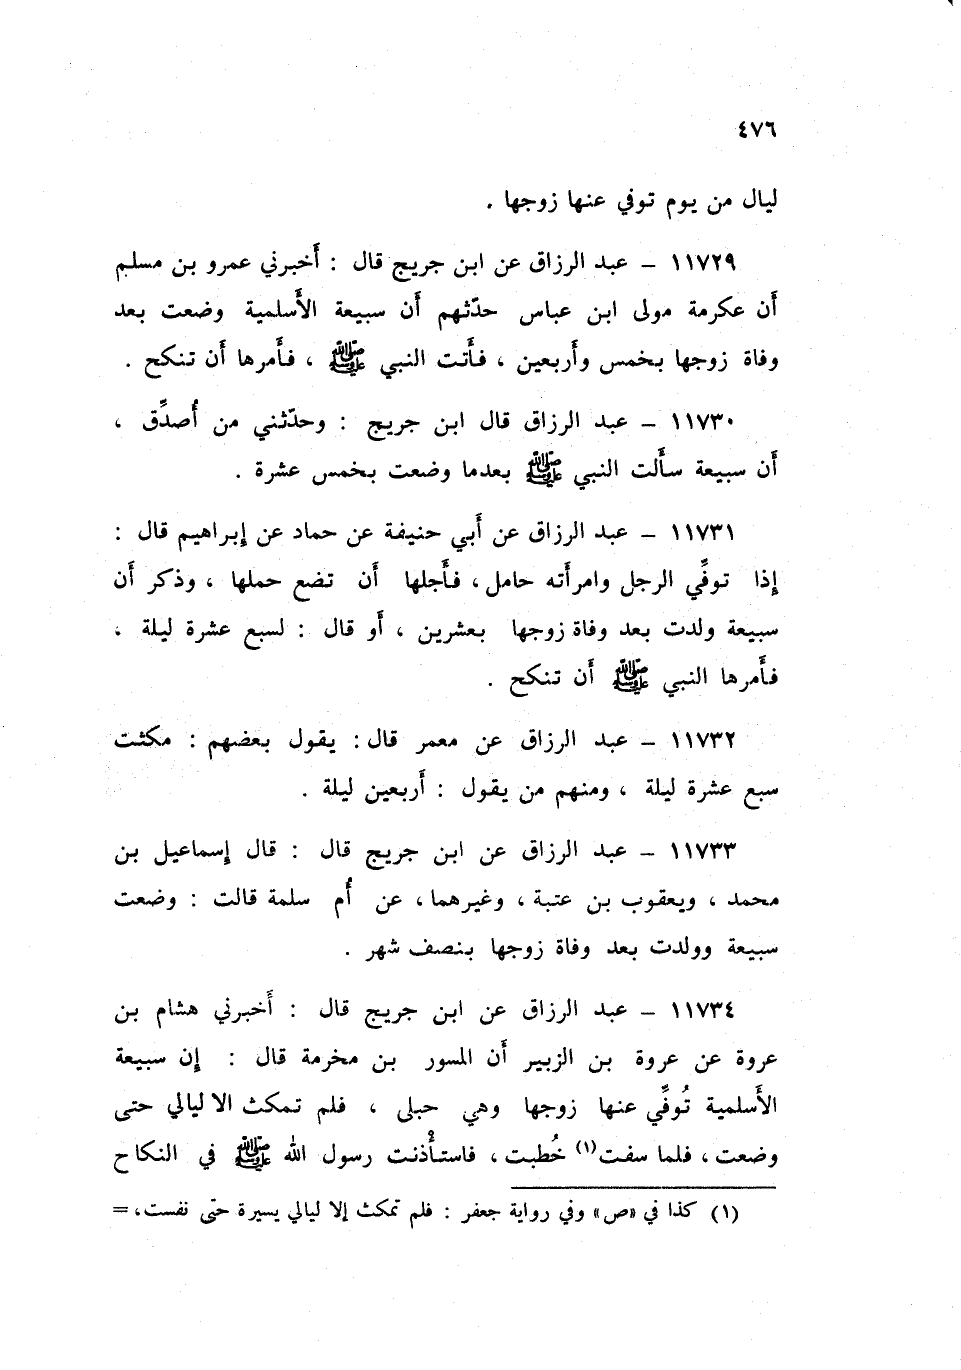 ٤٧٦
ليال من يوم توفي عنها زوجها .
١١٧٢٩ – عبد الرزاق عن ابن جريج قال : أخبرني عمرو بن مسلم
أن عكرمة مولى ابن عباس حدّثهم أن سبيعة الأسلمية وضعت بعد
وفاة زوجها بخمس وأربعين ، فأتت النبي ﷺ ، فأمرها أن تنكح .
١١٧٣٠ – عبد الرزاق قال ابن جريج : وحدّثني من أُصدِّق ،
أن سبيعة سألت النبي ﷺ بعدما وضعت بخمس عشرة .
١١٧٣١ – عبد الرزاق عن أبي حنيفة عن حماد عن إبراهيم قال :
إذا توفِّي الرجل وامرأته حامل ، فأجلها أن تضع حملها ، وذكر أن
سبيعة ولدت بعد وفاة زوجها بعشرين ، أو قال : لسبع عشرة ليلة ،
فأمرها النبي ﷺ أن تنكح .
١١٧٣٢ – عبد الرزاق عن معمر قال : يقول بعضهم : مكثت
سبع عشرة ليلة ، ومنهم من يقول : أربعين ليلة .
١١٧٣٣ – عبد الرزاق عن ابن جريج قال : قال إسماعيل بن
محمد ، ويعقوب بن عتبة ، وغيرهما ، عن أُم سلمة قالت : وضعت
سبيعة وولدت بعد وفاة زوجها بنصف شهر .
١١٧٣٤ – عبد الرزاق عن ابن جريج قال : أخبرني هشام بن
عروة عن عروة بن الزبير أن المسور بن مخرمة قال : إن سبيعة
الأسلمية تُوفِّي عنها زوجها وهي حبلى ، فلم تمكث الا ليالي حتى
وضعت ، فلما سفت (١) خُطبت ، فاستأْذنت رسول الله ﷺ في النكاح
(١) كذا في «ص» وفي رواية جعفر : فلم تمكث إلا ليالي يسيرة حتى نفست، =